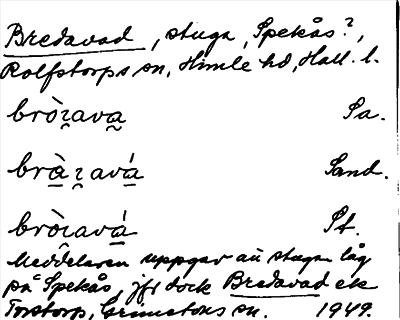 Bredavad, stuga, Spekås?,
Rolfstorps sn, Himle hd, Hall. l.
brò̤ɩ̯ava̰ Sa.
brà̱ɩ̯avá̱ Sand.
bròɩ̯avá̱ St.
Meddelaren uppgav att stugan låg
på Spekås, jfr dock Bredavad etc
Torstorp, Grimetons sn. 1949.